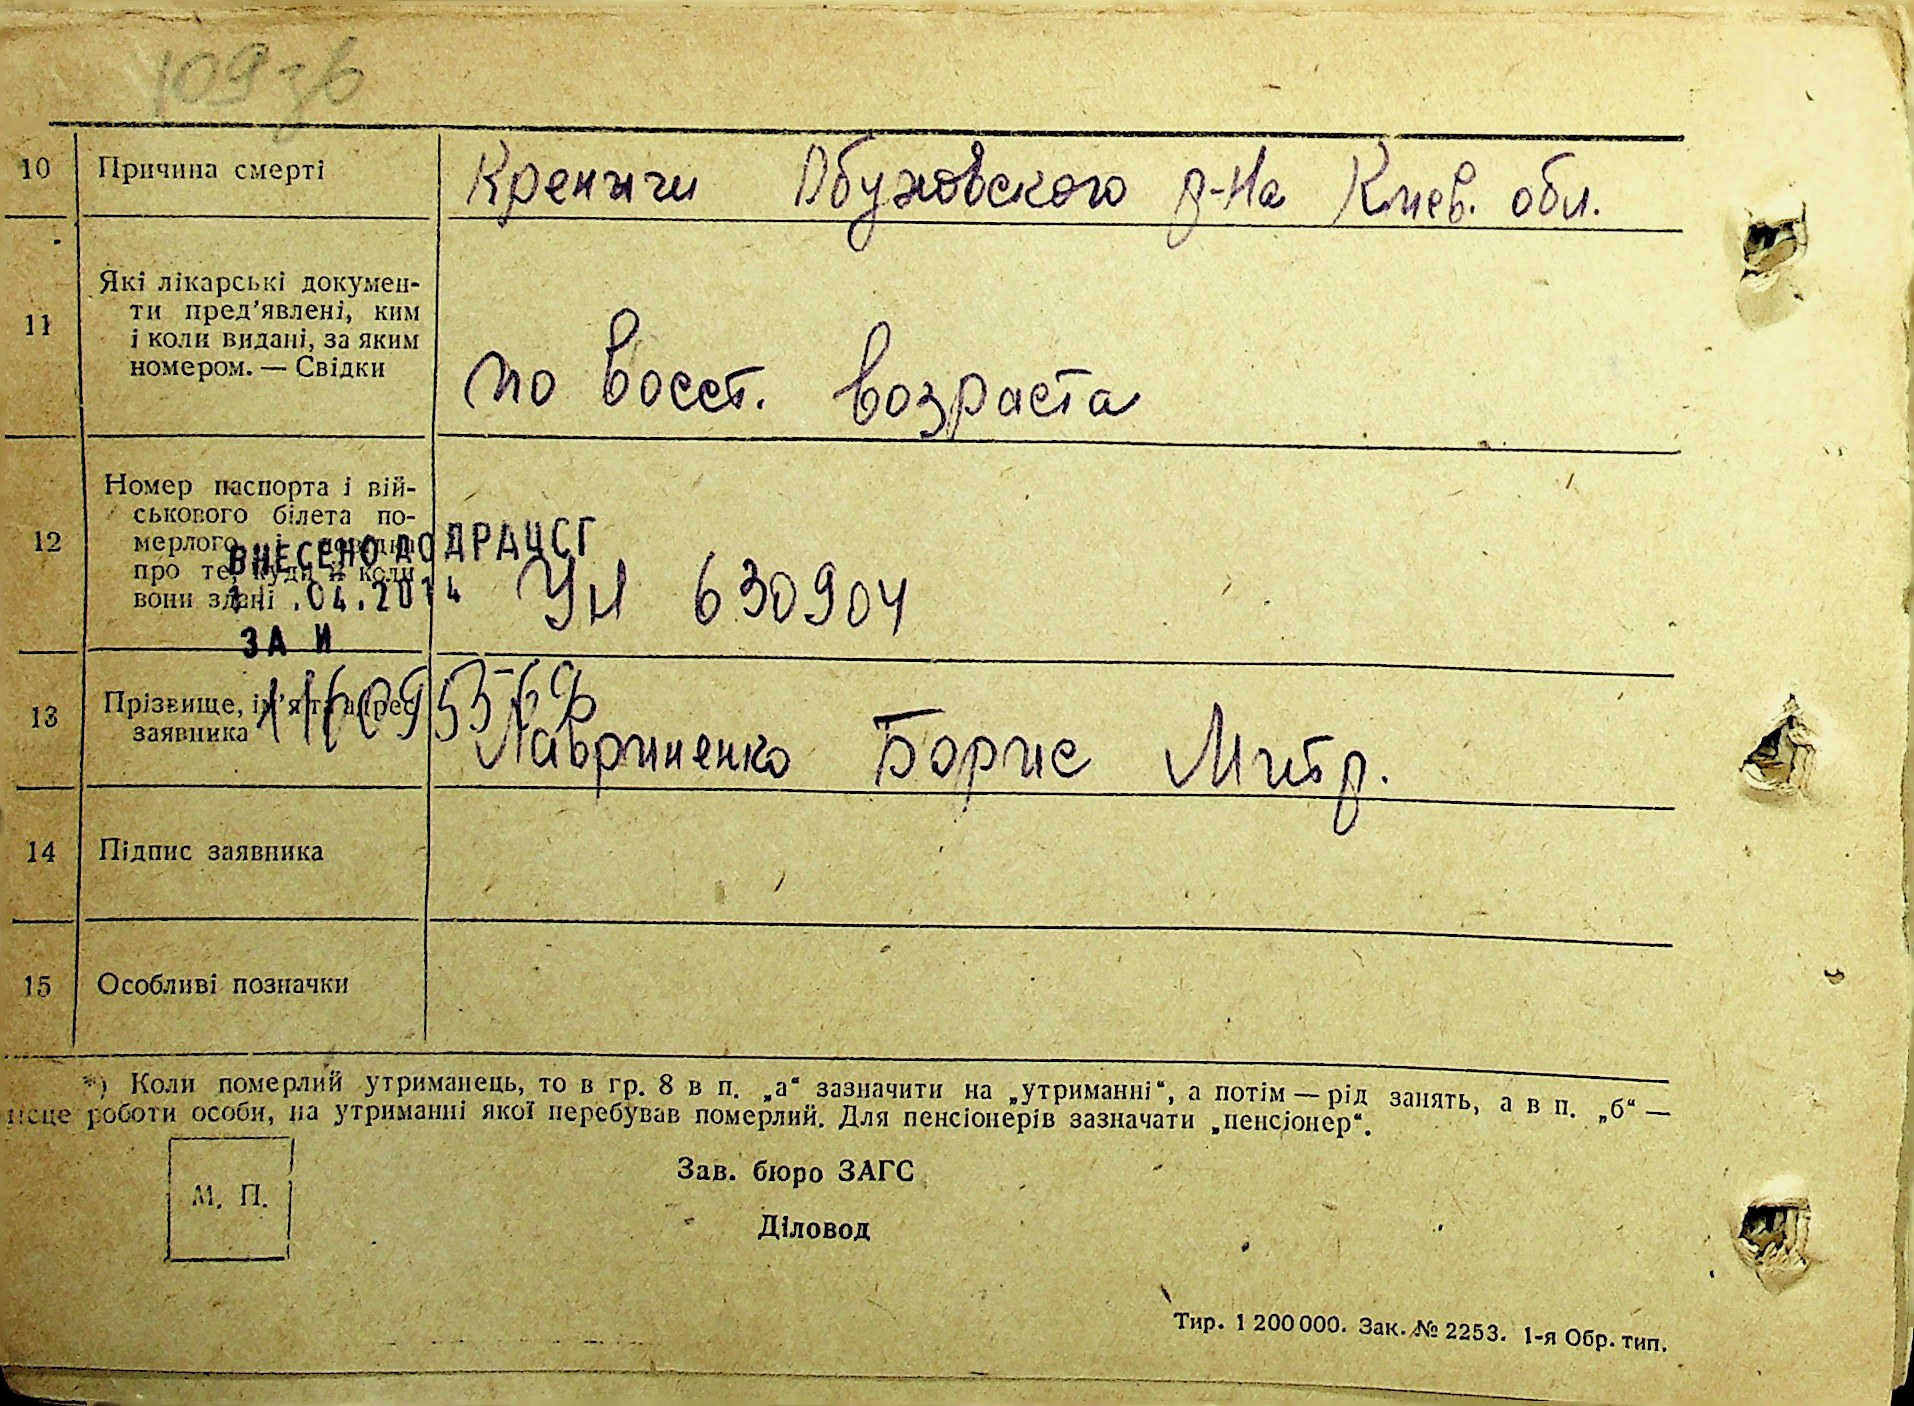 109 зв
10 Причина смерті Креничи Обуховского р-на Киев. обл.
11 Які лікарські докумен-
ти пред’явлені, ким
і коли видані, за яким
номером. — Свідки
по восст. возраста
12 Номер паспорта і вій-
ськового білета по-
мерлого і довідка
про те, куди й коли
вони здані
ВНЕСЕНО ДО ДРАЦСГ
11.04.2014
ЗА И
УИ 630904
13 Прізвище, ім’я та адрес
заявника
Лавриненко Борис Митр.
14 Підпис заявника
15 Особливі позначки
*) Коли померлий утриманець, то в гр. 8 в п. „а“ зазначити на „утриманні“, а потім — рід занять, а в п. „б“ —
місце роботи особи, на утриманні якої перебував померлий. Для пенсіонерів зазначати „пенсіонер“.
М. П.
Зав. бюро ЗАГС
Діловод
Тир. 1 200 000. Зак. № 2253. 1-я Обр. тип.